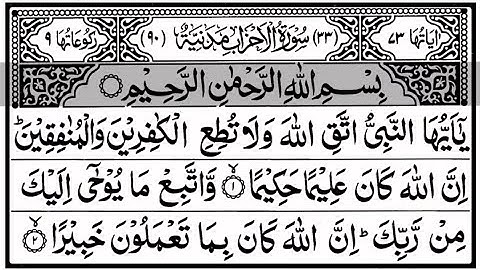 اٰيَاتُهَا ٧٣ (٣٣) سُوْرَةُ الْاَحْزَابِ مَدَنِيَّةٌ (٩٠) رُكُوْعَاتُهَا ٩
بِسْمِ اللّٰهِ الرَّحْمٰنِ الرَّحِيْمِ
يٰۤاَيُّهَا النَّبِىُّ اتَّقِ اللّٰهَ وَلَا تُطِعِ الْكٰفِرِيْنَ وَالْمُنٰفِقِيْنَ ؕ
اِنَّ اللّٰهَ كَانَ عَلِيْمًا حَكِيْمًا ۙ‏﴿١﴾ وَّاتَّبِعْ مَا يُوْحٰۤى اِلَيْكَ
مِنْ رَّبِّكَ ؕ اِنَّ اللّٰهَ كَانَ بِمَا تَعْمَلُوْنَ خَبِيْرًا ۙ‏﴿٢﴾